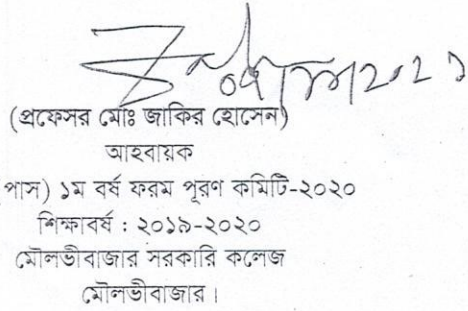 (প্রফেসর মোঃ জাকির হোসেন)
আহবায়ক
পাস) ১ম বর্ষ ফরম পূরণ কমিটি-২০২০
শিক্ষাবর্ষ : ২০১৯-২০২০
মৌলভীবাজার সরকারি কলেজ
মৌলভীবাজার।